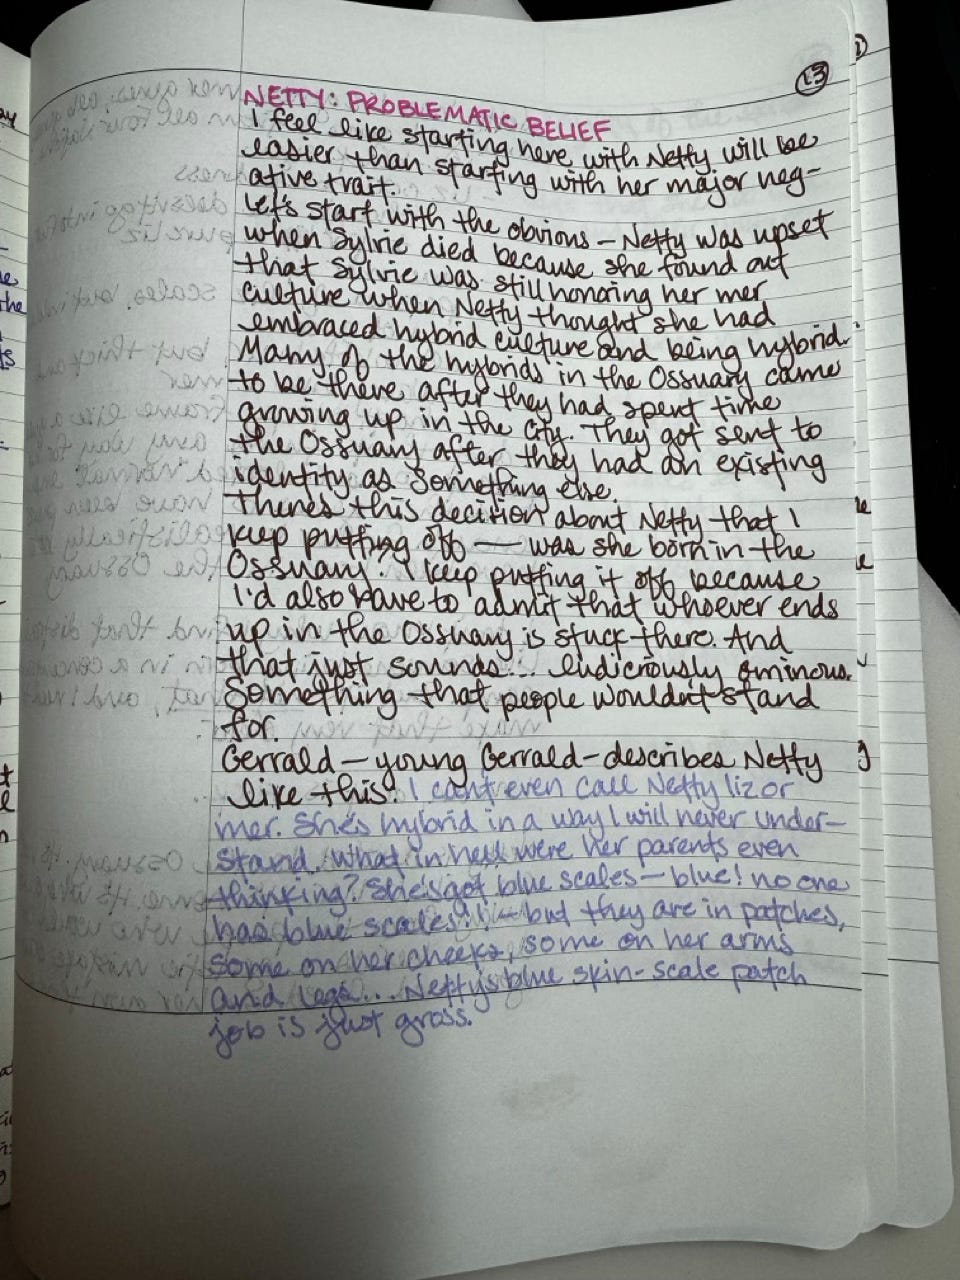 13
NETTY: PROBLEMATIC BELIEF
I feel like starting here with Netty will be
easier than starting with her major neg-
ative trait.
Let's start with the obvious - Netty was upset
when Sylvie died because she found out
that Sylvie was still honoring her mer
culture when Netty thought she had
embraced hybrid culture and being hybrid.
Many of the hybrids in the Ossuary came
to be there after they had spent time
growing up in the city. They got sent to
the Ossuary after they had an existing
identity as something else.
There's this decision about Netty that I
keep putting off — was she born in the
Ossuary? I keep putting it off because
I'd also have to admit that whoever ends
up in the Ossuary is stuck there. And
that just sounds... ludiciously ominous.
Something that people wouldn't stand
for.
Gerrald — young Gerrald - describes Netty
like this: I can't even call Netty liz or
mer. She's hybrid in a way I will never under-
stand. What in hell were her parents even
thinking? She's got blue scales — blue! no one
has blue scales!! — but they are in patches,
some on her cheeks, some on her arms
and legs... Netty's blue skin-scale patch
job is just gross.